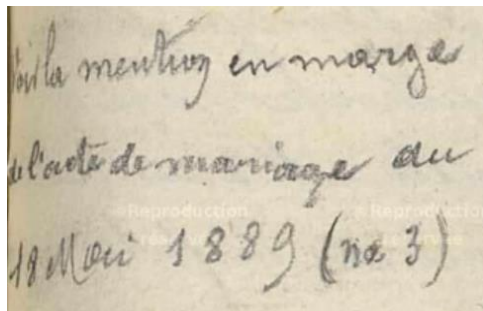 Voir la mention en marge
de l'acte de mariage du
18 Mai 1889 (no 3)
Reproduction
Reproduction